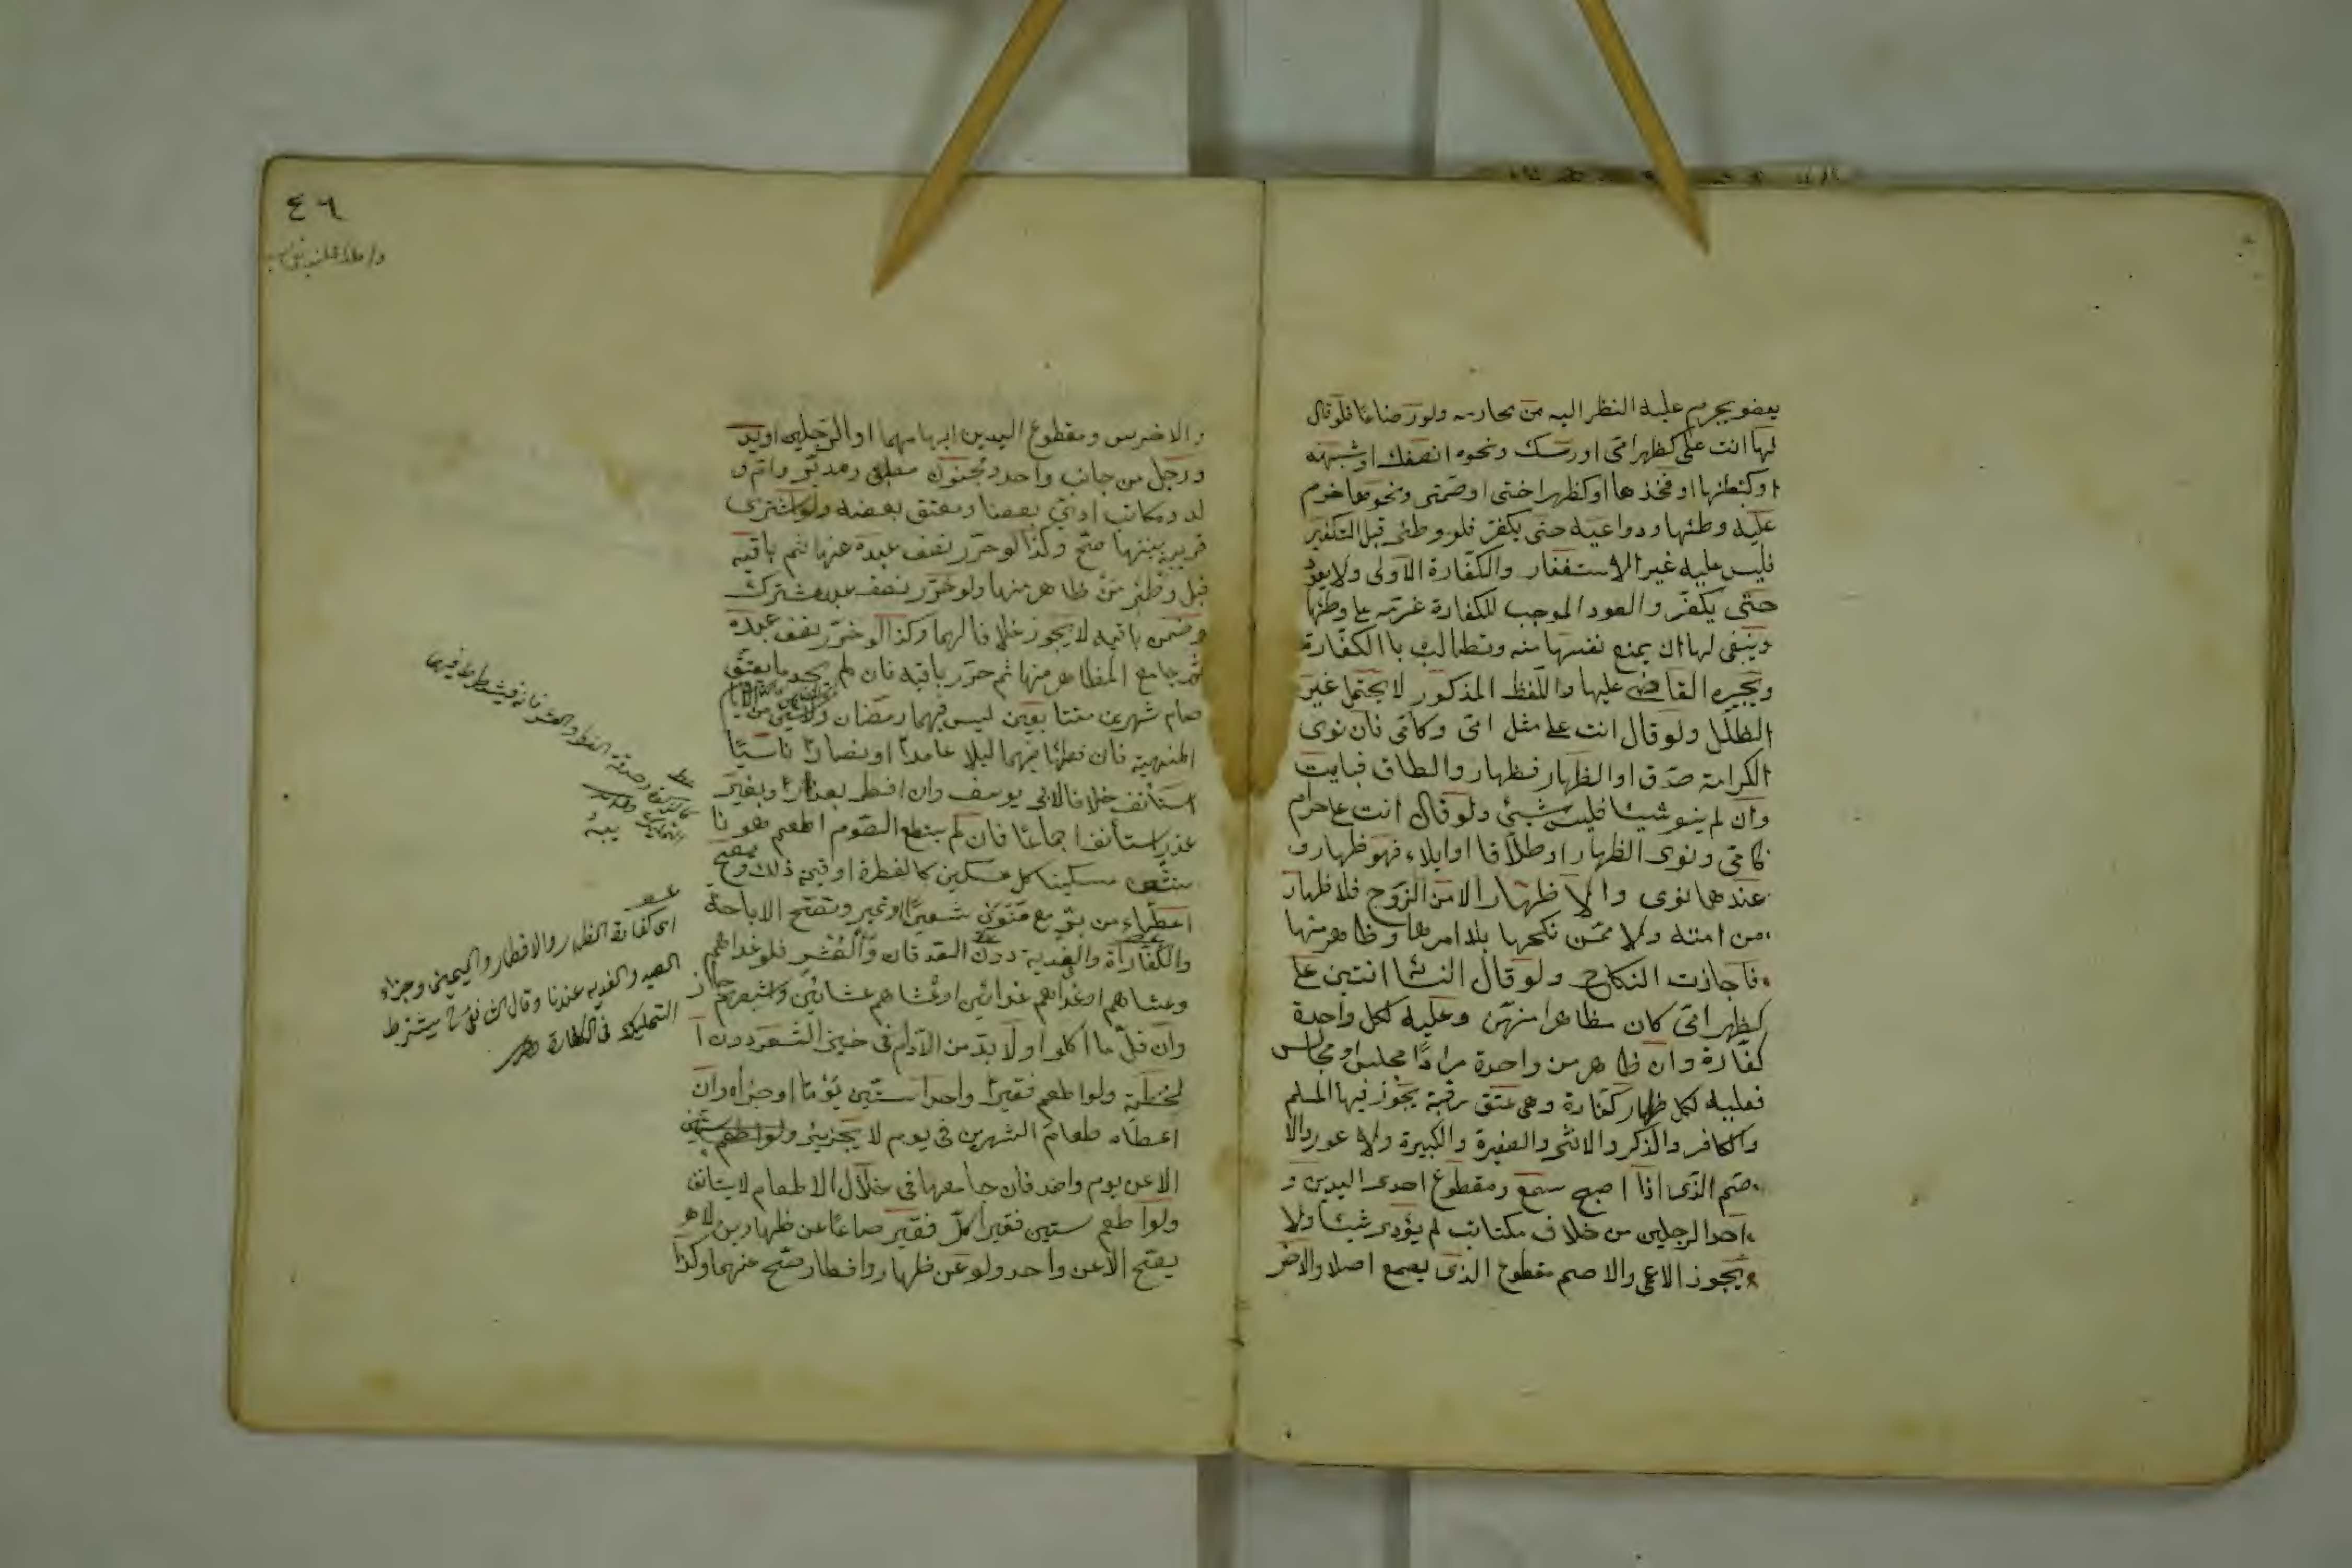 بعضو يحرم عليه النظر اليه من محارمه ولو رضاعا فلو قال
لها انت على كظهر امى او رأسك ونحوه او نصفك او شبهه
او كبطنها او فخذها او كظهر اختى او عمتى ونحوهما حرم
عليه وطئها ودواعيه حتى يكفر فلو وطئ قبل التكفير
فليس عليه غير الاستغفار والكفارة الاولى ولا يعود
حتى يكفر والعود الموجب للكفارة عزمه على وطئها
وينبغى لها ان يمنع نفسها منه وتطالب باالكفارة
ويجبره القاضى عليها واللفظ المذكور لا يحتمل غير
الظلل ولو قال انت على مثل امى وكامى فان نوى
الكرامة صدق او الظهار فظهار والطاق فبايت
وان لم ينو شيئا فليس بشئ ولو قال انت على حرام
كامى ونوى الظهار او طلاقا او ايلاء فهو ظهار و
عندهما نوى والا ظهار الا من الزوج فلا ظهار
من امته ولا ممن نكحها بلا امرها وظاهر منها
فاجازت النكاح ولو قال النسا انتين على
كظهر امى كان مظاهرا منهن وعليه لكل واحدة
كفارة وان ظاهر من واحدة مرارا مجلس او مجالس
فعليه لكل ظهار كفارة وهى عتق رقبة يجوز فيها المسلم
والكافر والذكر والانثى والصغيرة والكبيرة ولا عور والا
صم الذى اذا اصبح سمع ومقطوع احدى اليدين و
احد الرجلين من خلاف مكتاتب لم يؤدى شيئا ولا
يجوز الاعمى والاصم مقطوع الذى يصمع اصلا والاخر
٤٦
والاخرس ومقطوع اليدين ابهامهما او الرجلين او يد
ورجل من جانب واحد ومجنون مطبق ومدبر وام و
لد ومكاتب ادى بعضا ومعتق بعضه ولو اشترى
قريبه بنيتها صح وكذا لو حرر نصف عبده عنها ثم باقيه
قبل وطئ من ظاهر منها ولو حرر نصف عبد مشترك
وضمن باقيه لا يجوز خلافا لهما وكذا لو حرر نصف عبده
ثم جامع المظاهر منها ثم حرر باقيه فان لم يجد ما يعتق
صام شهرين متتابعين ليس فيهما رمضان ولا شئ من الايام
المنهية فان وطئها فيهما ليلا عامدا او نهارا ناسيا
استأنف خلافا لابى يوسف وان افطر بعذر او بغير
عذر استأنف اجماعا فان لم يستطع الصوم اطعم هو نا
مسكينا كل مسكين كالفطرة او قيمة ذلك وصح
اعطاء من بر مع منوى شعير او تمر وتصح الاباحة
والكفارة والفدية دون الصدقات والعشر فلو غداهم
وعشاهم او غداهم غدائين او عشاهم عشائين واشبعهم جاز
وان قل ما اكلوا ولا بد من الادام فى خبز الشعير دون ا
لحنطة ولو اطعم فقيرا واحدا ستين يوما اجزاه وان
اعطاه طعام الشهرين فى يوم لا يجزيه ولو اطعم ستين
الا عن يوم واحد فان جامعها فى خلال الاطعام لا يستانف
ولو اطعم ستين فقيرا كل فقير صاعا عن ظهارين لا
يصح الا عن واحد ولو عن ظهار وافطار صح عنهما وكذا
اى كفارة الظهار والافطار واليمين وجزاء
الصيد والفديه عندنا وقال يشترط
التمليك فى الكفارة